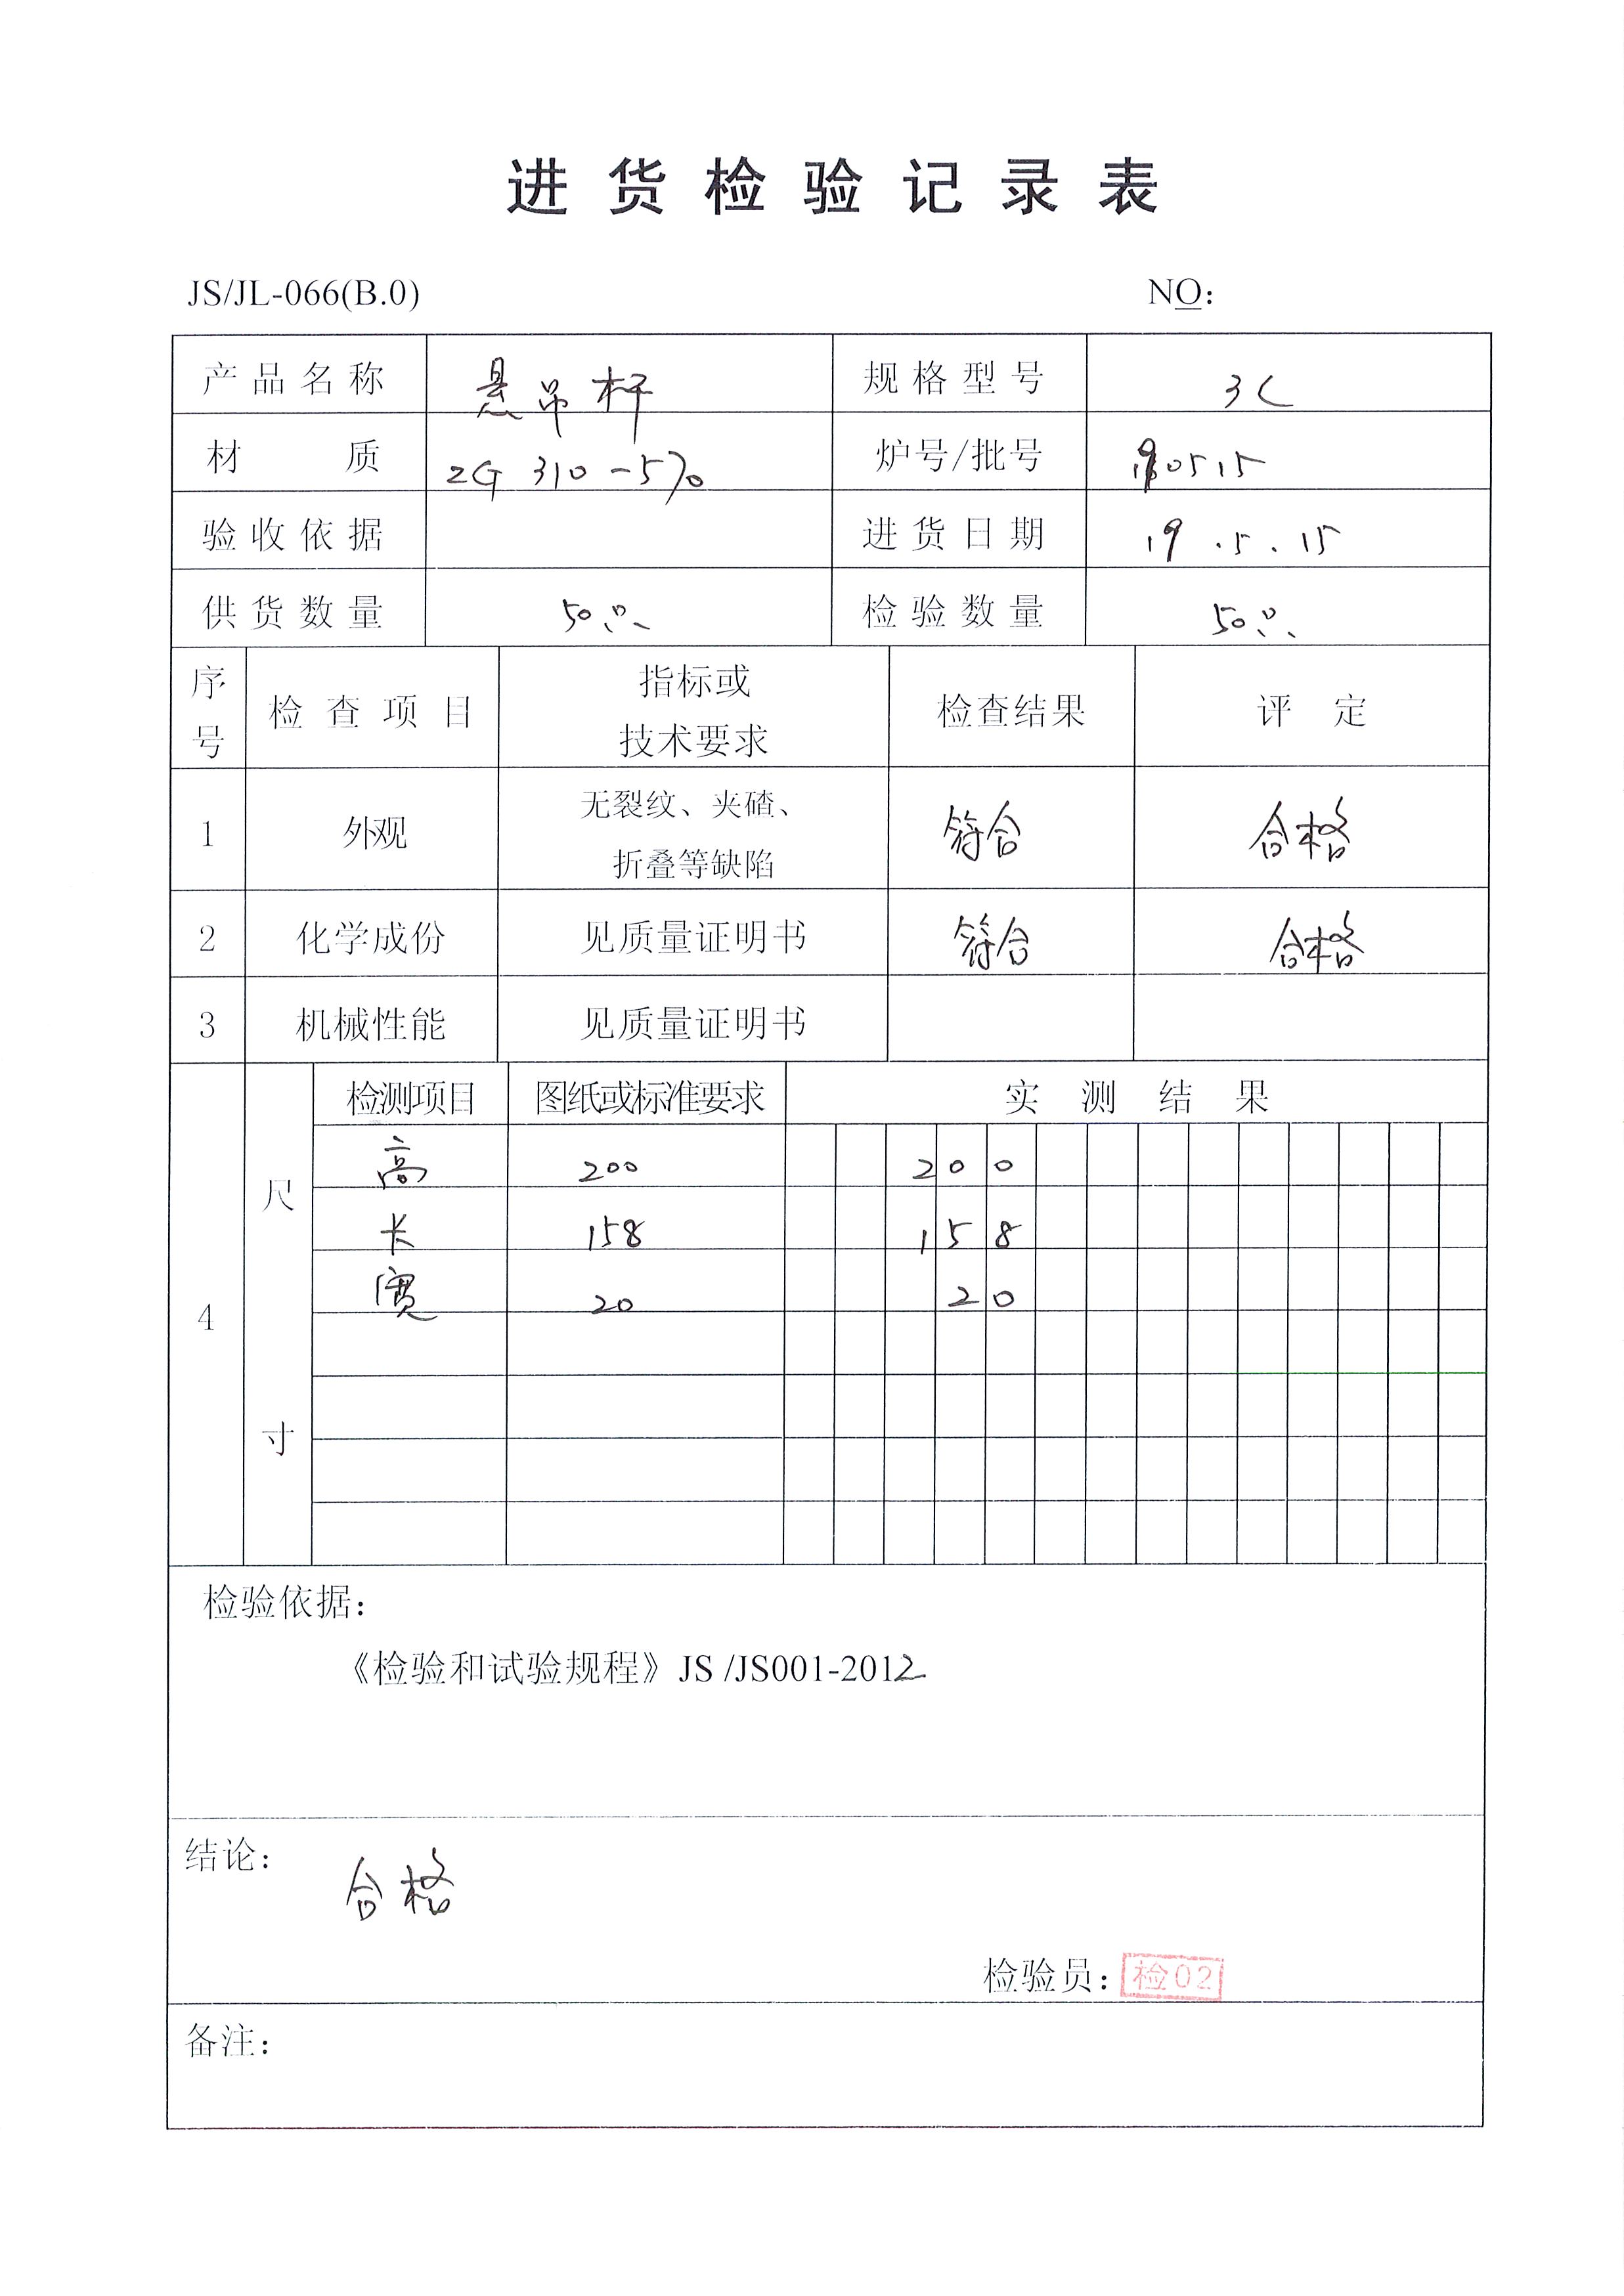 进货检验记录表
JS/JL-066(B.0) NO:
产品名称 悬吊杆 规格型号 3C
材质 ZG 310-570 炉号/批号 190515
验收依据 进货日期 19.5.15
供货数量 50只 检验数量 50只
序号 检查项目 指标或技术要求 检查结果 评定
1 外观 无裂纹、夹碴、折叠等缺陷 符合 合格
2 化学成份 见质量证明书 符合 合格
3 机械性能 见质量证明书
4 尺寸 检测项目 图纸或标准要求 实测结果
高 200 200
长 158 158
宽 20 20
检验依据:
《检验和试验规程》JS /JS001-2012
结论:
合格
检验员: 检02
备注: